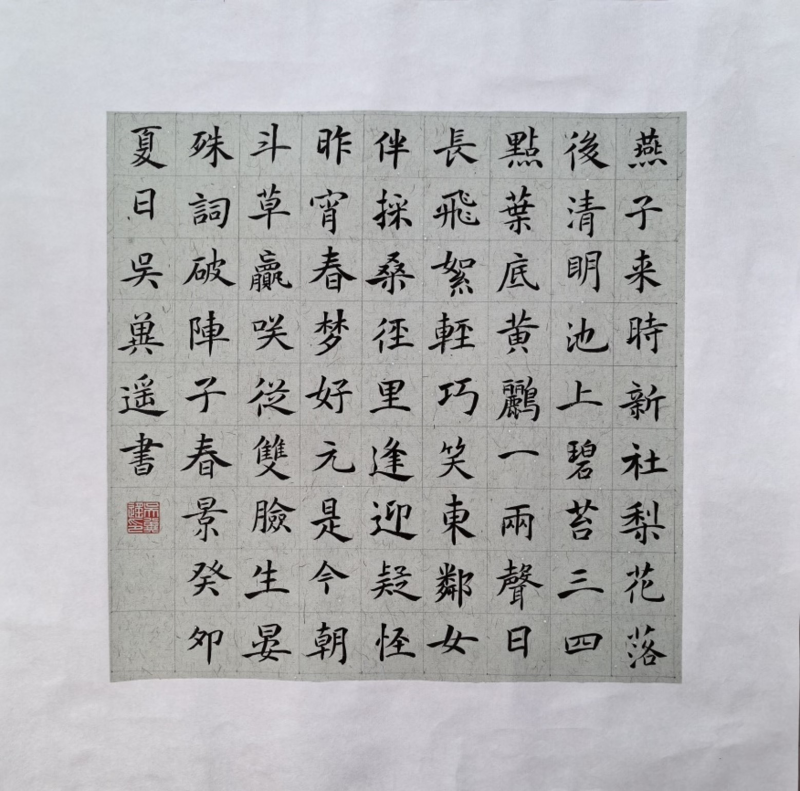 燕子来時新社梨花落
後清明池上碧苔三四
點葉底黄鸝一兩聲日
長飛絮輕巧笑東鄰女
伴採桑徑里逢迎疑怪
昨宵春梦好元是今朝
斗草贏咲從雙臉生晏
殊詞破陣子春景癸卯
夏日吳冀遥書